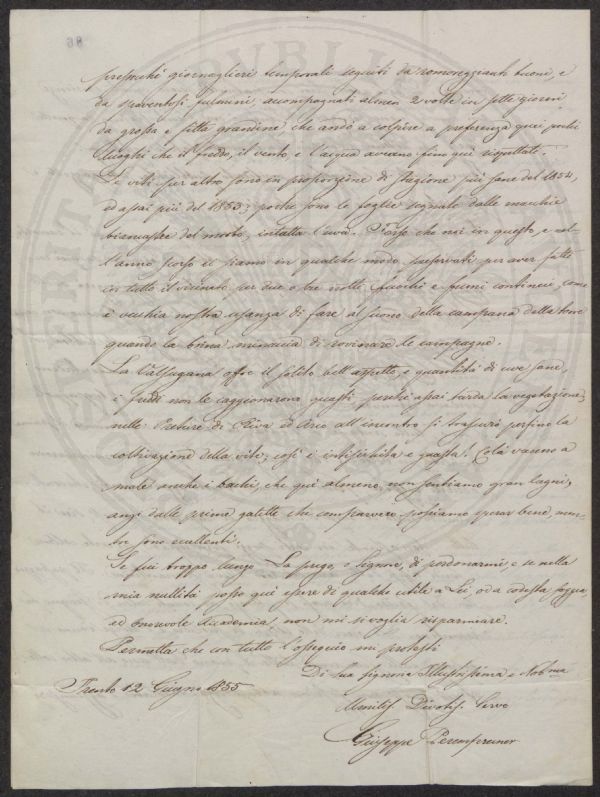 presochè giornaglieri temporali seguiti da romoreggianti tuoni, e
da spaventosi fulmini, accompagnati almen 2 volte in sette giorni
da grossa e fitta grandine che andò a colpire a preferenza quei pochi
luoghi che il freddo, il vento, e l'acqua aveano fino quì rispettato.
Le viti per altro sono in proporzione di stagione più sane del 1854,
ed assai più del 1853; poche sono le foglie segnate dalle macchie
biancastre del morbo, intatta l'uva. Forse che noi in questo, e nel-
l'anno scorso ci siamo in qualche modo preservati per aver fatti
in tutto il vicinato per due o tre notti, fuochi e fumi continui, come
è vecchia nostra usanza di fare al suono della campana della torre
quando la brina minaccia di rovinare le campagne.
La Valsugana offre il solito bell'aspetto, e quantità di uve sane,
i freddi non le caggionarono guasti, perchè assai tarda la vegetazione;
nelle Preture di Riva ed Arco all'incontro si trascurò perfino la
coltivazione della vite, così è intisichita e guasta! Colà vanno a
male anche i bachi, che quì almeno, non sentiamo gran lagni,
anzi dalle prime galette che comparvero possiamo sperar bene, men-
tre sono eccellenti.
Se fui troppo lungo La prego, o Signore, di perdonarmi, e se nella
mia nullità posso quì essere di qualche utile a Lei, od a codesta saggia,
ed onorevole Accademia, non mi si voglia risparmiare.
Permetta che con tutto l'ossequio mi protesti
Di Sua Signoria Illustrissima e Nobma
Trento 12 Giugno 1855
Umiliss Divotiss Servo
Giuseppe
86